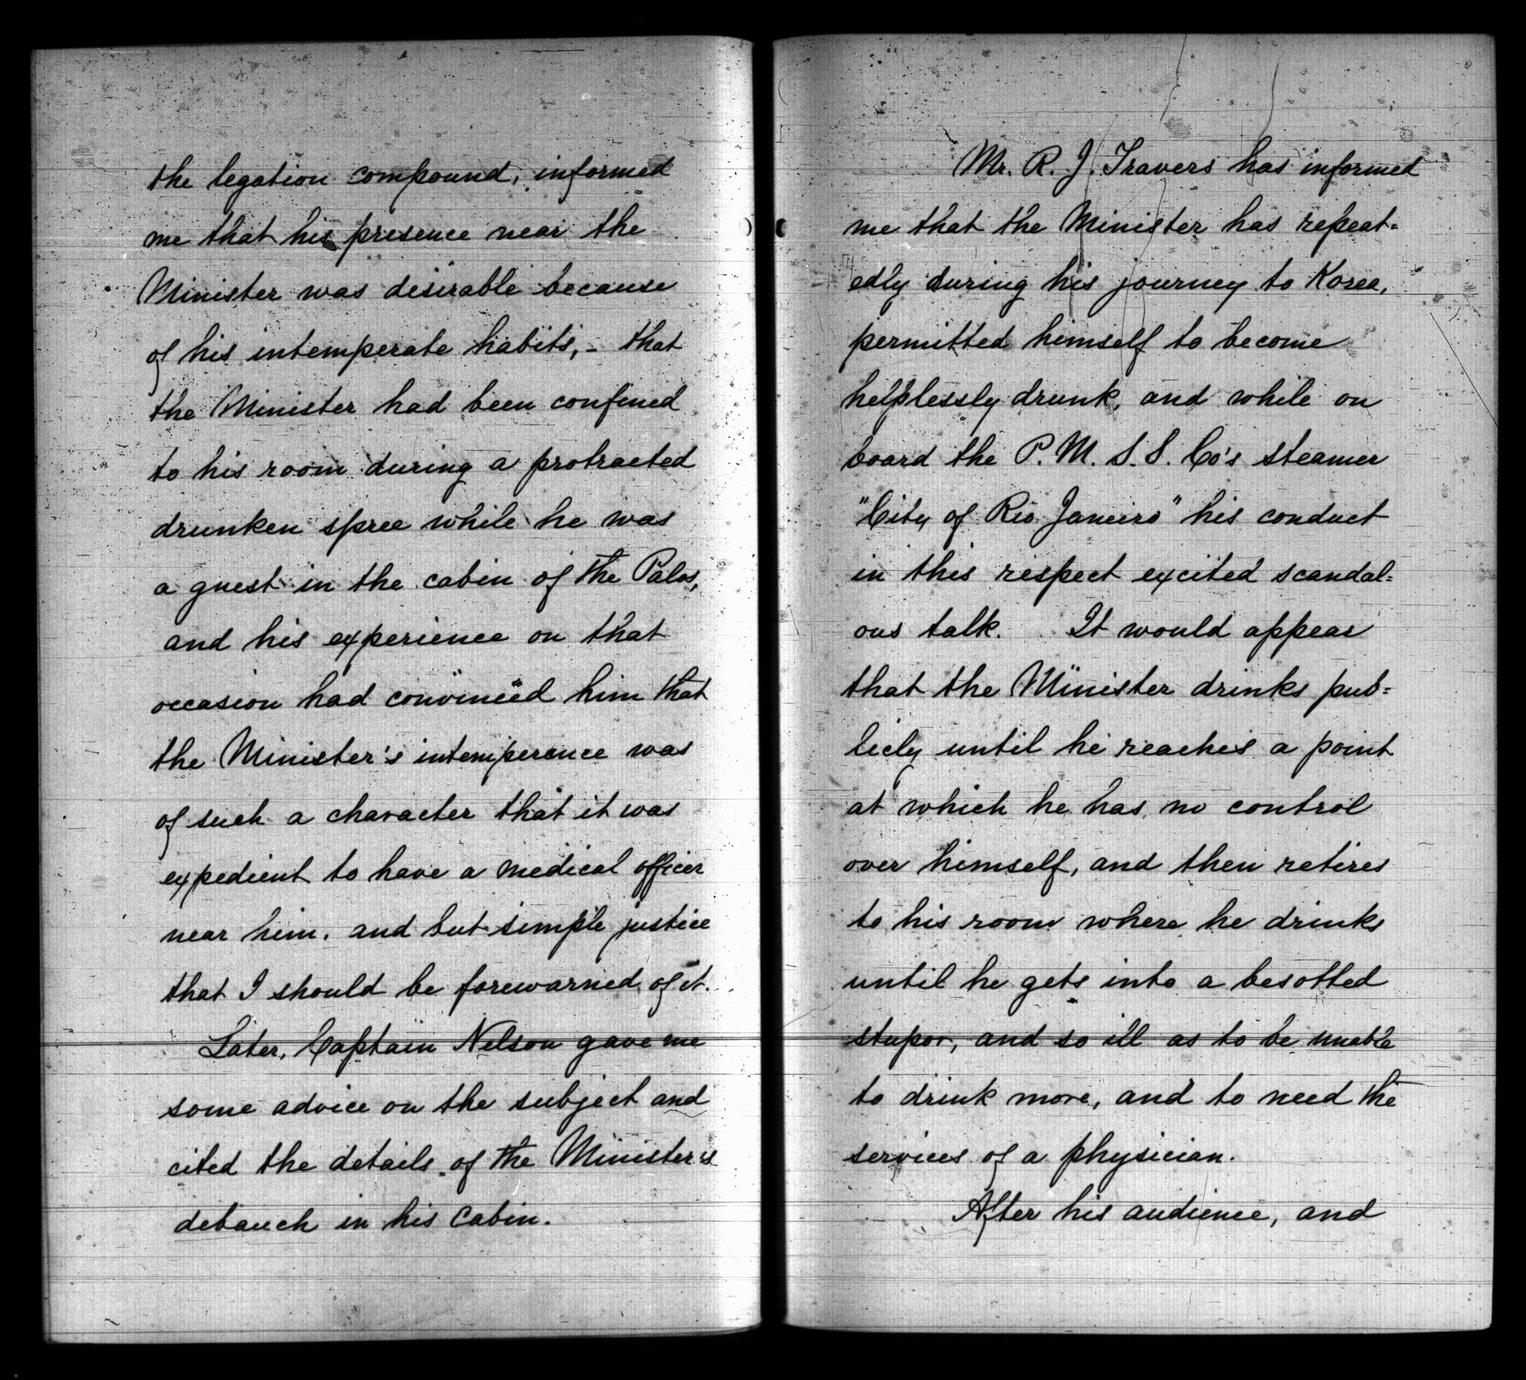 the legation compound, informed
me that his presence near the
Minister was desirable because
of his intemperate habits,- that
the Minister had been confined
to his room during a protracted
drunken spree while he was
a guest in the cabin of the Palos,
and his experience on that
occasion had convinced him that
the Minister's intemperence was
of such a character that it was
expedient to have a medical officer
near him. and but simple justice
that I should be forewarned of it.
Later, Captain Nelson gave me
some advice on the subject and
cited the details of the Minister's
debauch in his cabin.
Mr. R. J. Travers has informed
me that the Minister has repeat=
edly during his journey to Korea,
permitted himself to become
helplessly drunk, and while on
board the P. M. S. S. Co's steamer
"City of Rio Janeiro" his conduct
in this respect excited scandal=
ous talk. It would appear
that the Minister drinks pub=
licly until he reaches a point
at which he has no control
over himself, and then retires
to his room where he drinks
until he gets into a besotted
stupor, and so ill as to be unable
to drink more, and to need the
services of a physician.
After his audience, and